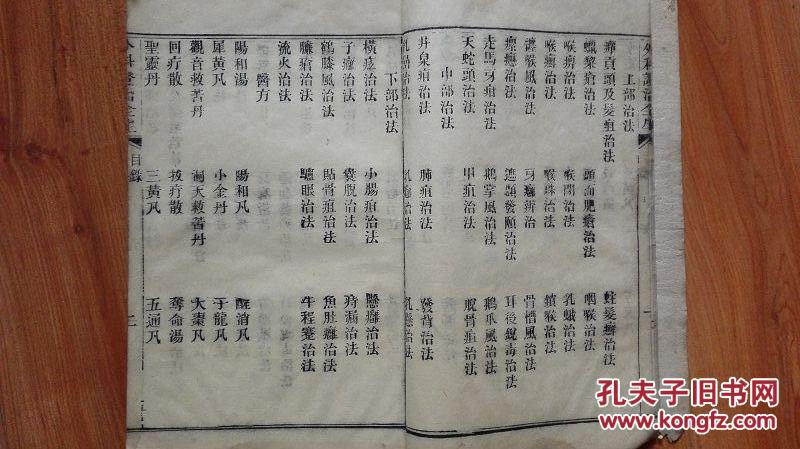 上部治法
癤貢頭及髮疽治法 蛀髮癬治法
蠟黎瘡治法 頭面肥瘡治法 咽喉治法
喉痹治法 喉閉治法 乳蛾治法
喉癬治法 喉珠治法 鎖喉治法
纏喉風治法 牙癰辨治 骨槽風治法
瘰癧治法 遮頭發頤治法 耳後銳毒治法
走馬牙疳治法 鵝掌風治法 鵝爪風治法
天蛇頭治法 甲疽治法 脫骨疽治法
中部治法
井泉疽治法 肺疽治法 發背治法
乳癰治法
下部治法
橫痃治法 小腸疽治法 懸癰治法
子癰治法 囊脫治法 痔漏治法
鶴膝風治法 貼骨疽治法 魚肚癰治法
臁瘡治法 鱧眼治法 牛程蹇治法
流火治法
醫方
陽和湯 陽和丸 醒消丸
犀黃丸 小金丹 子龍丸
觀音救苦丹 洞天救苦丹 大棗丸
回疔散 拔疔散 奪命湯
聖靈丹 三黃丸 五通丸
目錄
二
孔夫子旧书网
www.kongfz.com